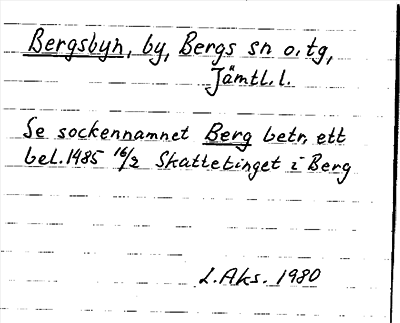 Bergsbyn, by, Bergs sn o. tg,
Jämtl. l.
Se sockennamnet Berg betr. ett
bel. 1485 16/2 Skattetinget i Berg
L. Aks. 1980